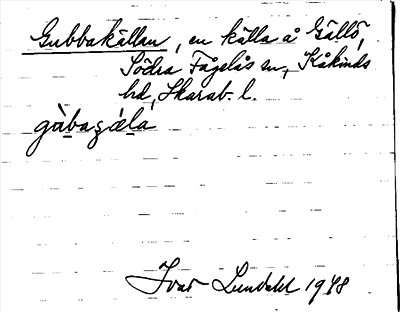 Gubbakällan, en källa å Gällö,
Södra Fågelås sn, Kåkinds
hd, Skarab. l.
gùbaʂǽla
Ivar Lundahl 1948